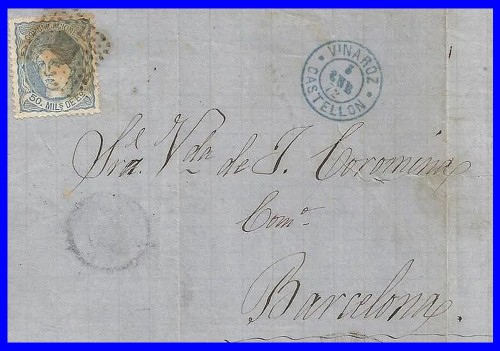 50 MILS DE E.
VINAROZ
CASTELLON
Sra. Vda de J. Coromina
Como
Barcelona.